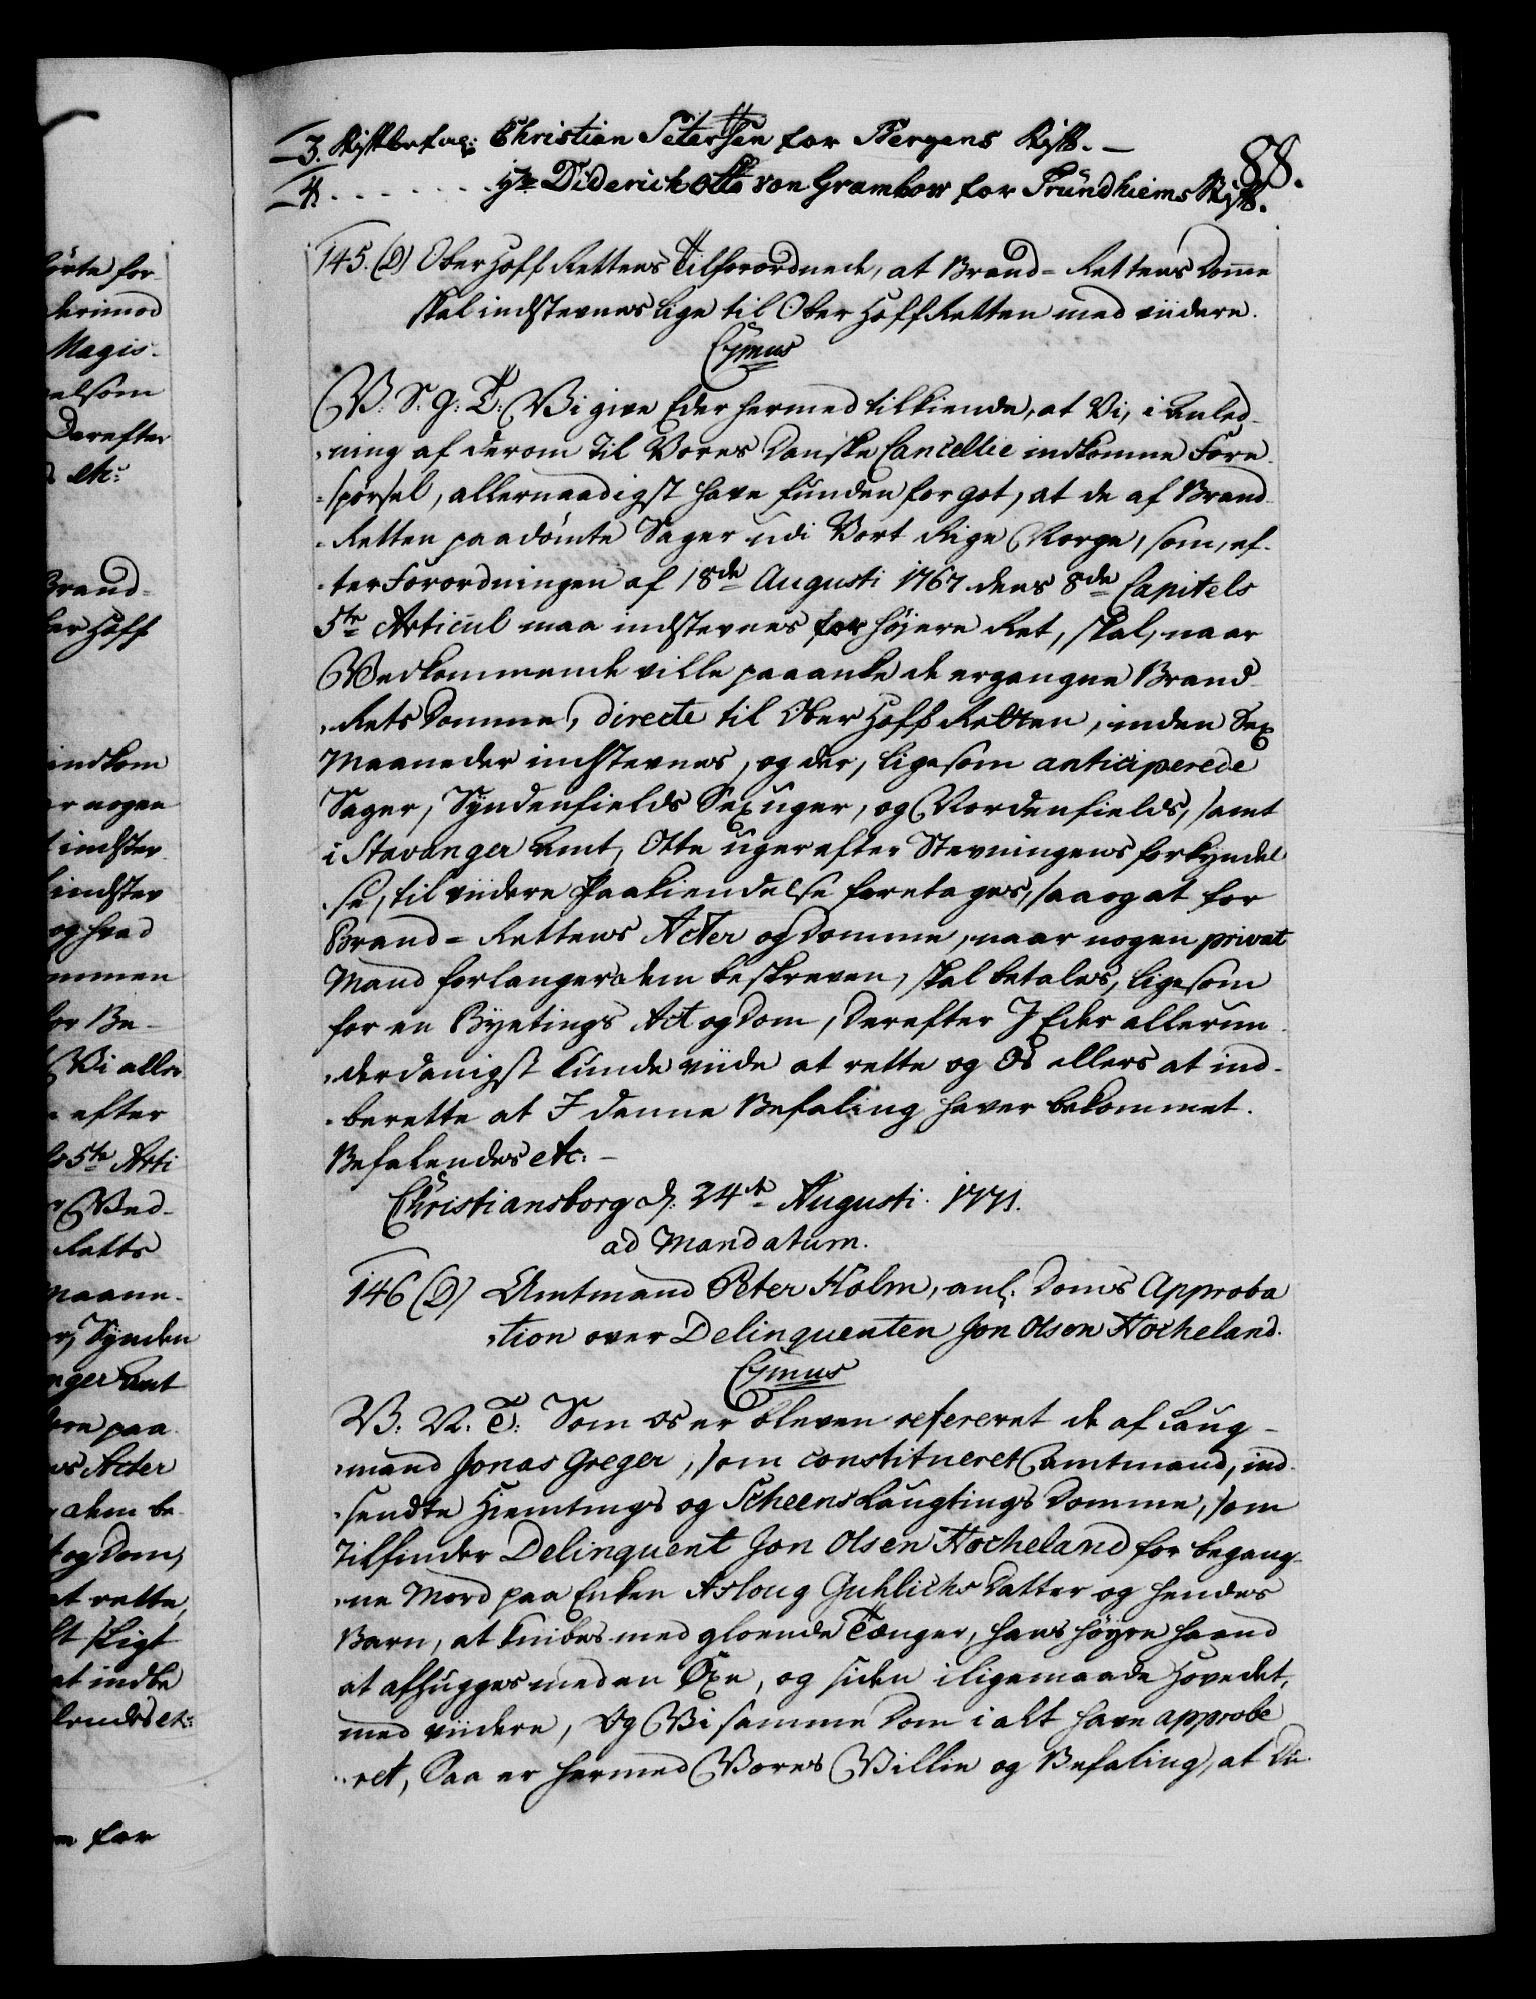 88.
3. Stiftbefal: Christian Petersen for Bergens Stift. —
4. - - - - - - - Hr Diderich Otto von Grambow for Trundhiems Stift.
145. (D) Ober Hoff Rettens Tilforordnede, at Brand= Rettens Domme
skal indstevnes lige til Ober Hoff Retten med viidere.
V: S. g: T: Vi give Eder hermed tilkiende, at Vi, i Anled-
-ning af derom til Vores Danske Cancellie indkomne Fore-
-spørsel, allernaadigst have funden for got, at de af Brand-
-Retten paadømte Sager udi Vort Rige Norge, som, ef-
-ter Forordningen af 18de Augusti 1767 dens 8de Capitels
5te Articul maa indstevnes for høyere Ret, skal, naar
Vedkommende ville paaanke de ergangne Brand-
-Rets Domme, directe til Ober Hoff Retten, inden Sex
Maaneder indstevnes, og der, ligesom anticiperede
Sager, Syndenfields Sex uger, og Nordenfields, samt
i Stavanger Amt, Otte uger efter Stevningens forkyndel-
-se, til viidere Paakiendelse foretages, saa og at for
Brand= Rettens Acter og Domme, naar nogen privat
Mand forlanger dem beskreven, skal betales, ligesom
for en Byetings Act og Dom, Derefter I Eder allerun-
-derdanigst kunde viide at rette og Os ellers at ind-
-berette at I denne Befaling haver bekommet.
Befalendes etc: —
Christiansborg d: 24de Augusti. 1771.
ad Mandatum.
146 (D) Amtmand Peter Holm, anl: Doms Approba
-tion over Delinquenten Jon Olsen Hocheland.
V: V. T: Som Os er bleven refereret de af Laug-
-mand Jonas Greger, som constitueret Amtmand, ind-
-sendte Hiemtings og Scheens Laugtings Domme, som
tilfinder Delinquent Jon Olsen Hocheland for begang-
-ne Mord paa Enken Asloug Guhlichs Datter og hendes
Barn, at knibes med gloende Tænger, hans høyre Haand
at afhugges med en Øxe, og siden iligemaade Hovedet,
med viidere, Og Vi samme Dom i alt have approbe-
-ret, Saa er hermed Vores Villie og Befaling, at Du